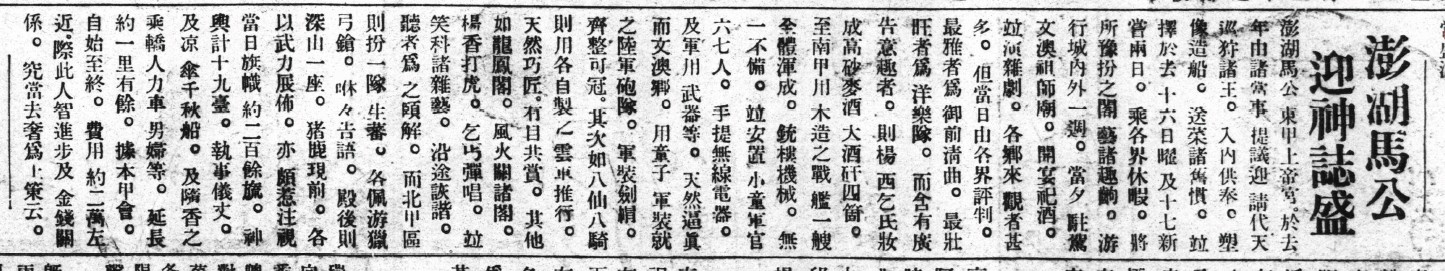 澎湖馬公
迎神誌盛
澎湖馬公東甲上帝宮。於去
年由諸當事。提議迎請代天
巡狩諸王。入內供奉。塑
像造船。送菜諸舊慣。竝
擇於去十六日曜及十七新
嘗兩日。乘各界休暇。將
所豫扮之閣藝諸趣齣。游
行城內外一週。當夕駐駕
文澳祖師廟。開宴祀酒。
竝演雜劇。各鄉來觀者甚
多。但當日由各界評判。
最雅者爲御前清曲。最壯
旺者爲洋樂隊。而含有廣
告意趣者。則楊西乞氏妝
成高砂麥酒大酒矸四個。
至南甲用木造之戰艦一艘
全體渾成。銃樸機械。無
一不備。竝安置小童軍官
六七人。手提無線電器。
及軍用武器等。天然逼眞
而文澳鄉。用童子軍裝就
之陸軍砲隊。軍裝劍帽。
齊整可冠。其次如八仙八騎
則用各自製之雲車推行。
天然巧匠。有目共賞。其他
如龍鳳閣。風火關諸閣。
楊香打虎。乞丐彈唱。竝
笑科諸雜藝。沿途詼諧。
聽者爲之頤解。而北甲區
則扮一隊生蕃。各佩游獵
弓鎗。咻々吿語。殿後則
深山一座。猪鹿現前。各
以武力展佈。亦頗惹注視
當日旗幟約二百餘旒。神
輿計十九臺。執事儀丈。
及凉傘千秋船。及隨香之
乘轎人力車男婦等。延長
約一里有餘。據本甲會。
自始至終。費用約二萬左
近。際此人智進步及金錢關
係。究當去奢爲上策云。